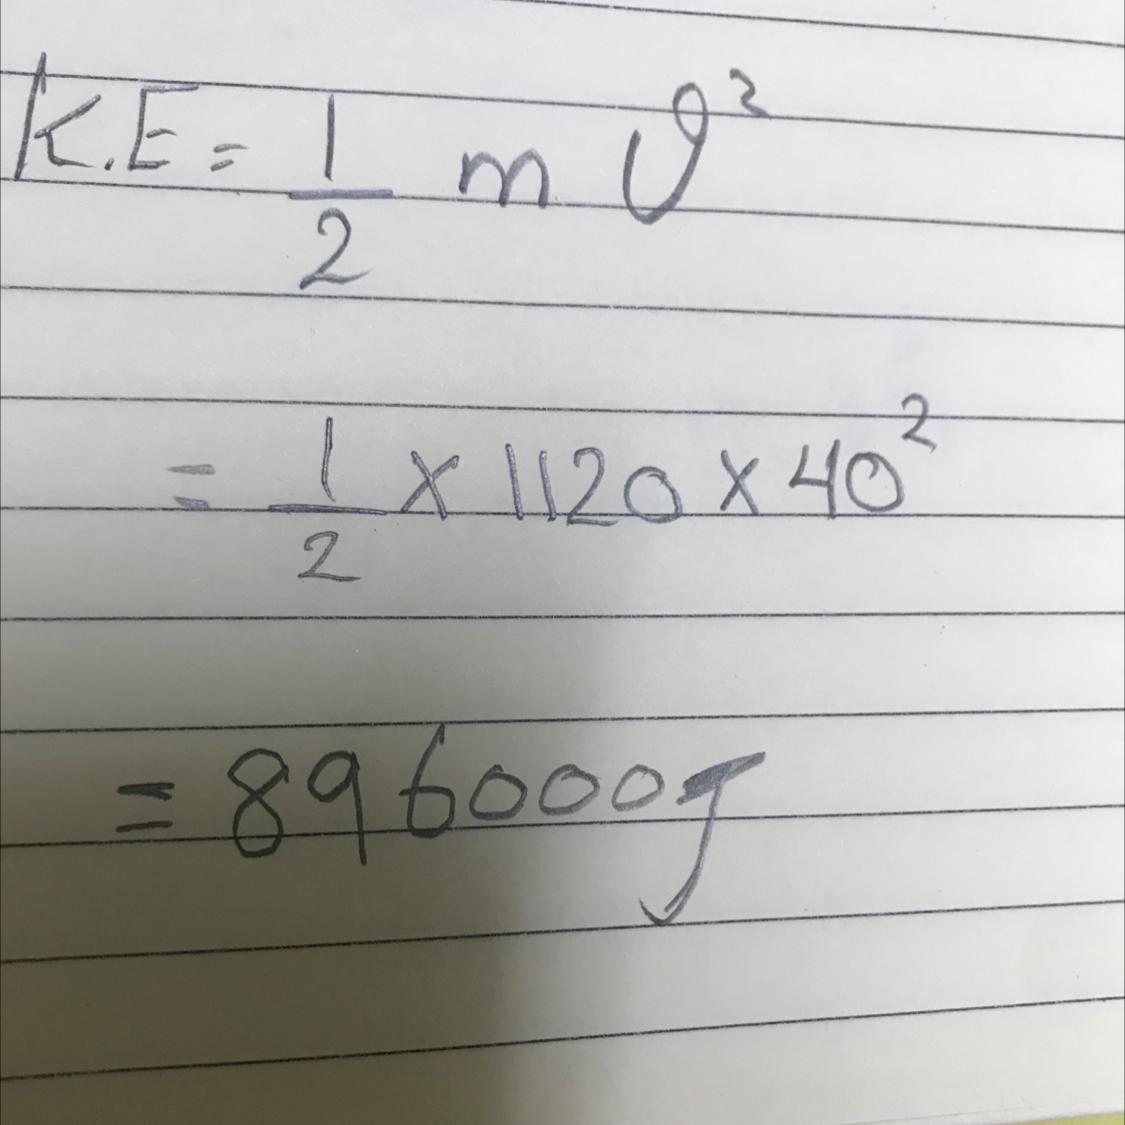 K.E = 1/2 m v²
= 1/2 × 1120 × 40²
= 896000J